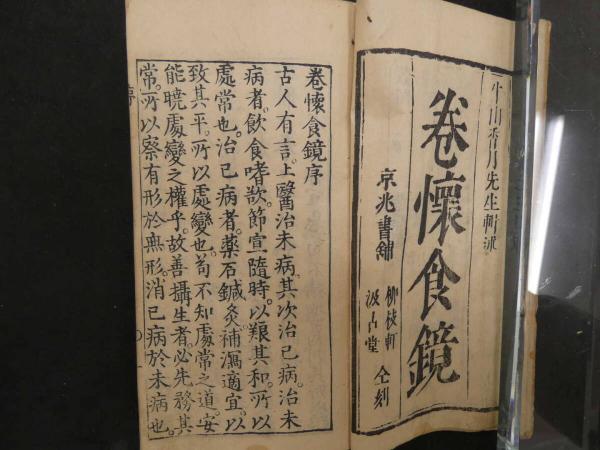 牛山香月先生輯述
卷懷食鏡
京兆書鋪
柳枝軒
汲古堂
仝刻
卷懷食鏡序
古人有言上醫治未病其次治已病治未
病者飲食嗜欲節宣隨時以艱其和所以
處常也治已病者藥石鍼灸補瀉適宜以
致其平所以處變也苟不知處常之道安
能曉處變之權乎故善攝生者必先務其
常所以察有形於無形消已病於未病也
序